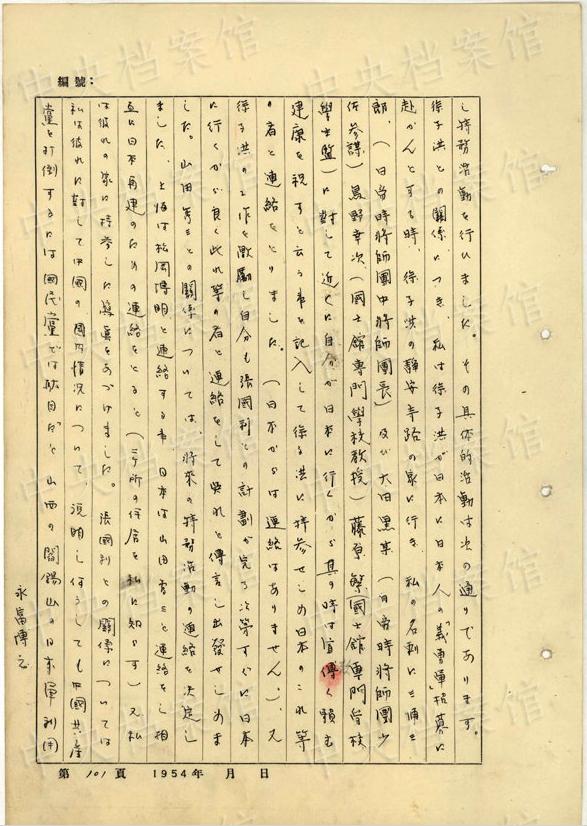 編號：
し特務活動を行いました。その具体的活動は次の通りであります。
徐子洪との関係につき、私は徐子洪が日本に日本人の「義勇軍」招募に
赴かんとする時、徐子洪の静安寺路の家に行き、私の名刺に三通を
郎、(日当時将師團中将師團長)及び大田黒某(日当時将師團少
佐参謀)鳥野幸次(國士館専門學校教授)藤原繁(國士舘専門學校
學生監)に対して近く自分が日本に行くから其の時は宜敷く頼む
建康を祝すと云う事を記入して徐子洪に持参せしめ日本のこれ等
の者と連絡をとりました。(日本からは連絡はありません。)、又
徐子洪の工作を激勵し自分も張國利との計劃が完了次第すぐに日本
に行くから良く此れ等の者と連絡をして呉れと傳言し出發せしめま
した。山田秀三との関係については、將来の特務活動の連絡を決定し
ました、上海は松岡傳明と連絡する事、日本は山田秀三と連絡をし相
互に日本再建のための連絡をとると(二ヶ所の住居を私に知らす)又私
は彼れの家に持参した寫眞をあづけました。張國利との関係については
私は彼れに対して中國の國内情况について説明し何うしても中國共産
黨を打倒するには國民黨では駄目だと山西の閻錫山の日本軍利用
永富博之
第 101 頁 1954年 月 日
中央档案馆